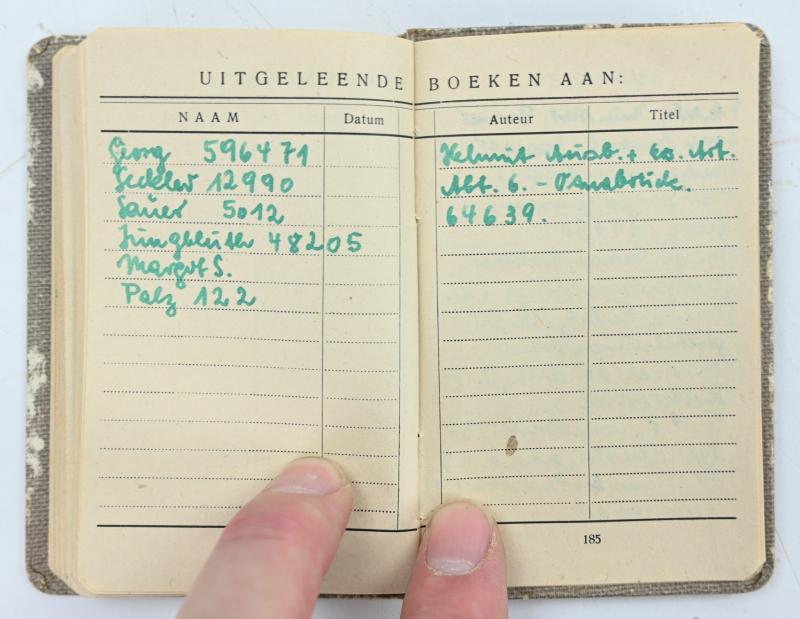 UITGELEENDE BOEKEN AAN:
NAAM Datum Auteur Titel
Georg 596471
Seckler 12990
Sauer 5012
Jungbluth 48205
Margot S.
Palz 122
Helmut Ausb. + Eo. Art.
Abt. 6. - Osnabrück.
64639.
185